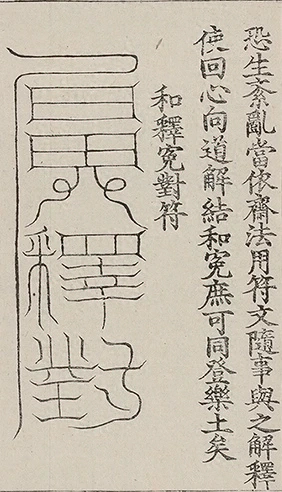 恐生紊亂當依齋法用符文隨事與之解釋
使回心向道解結和冤庶可同登樂土矣
和釋冤對符